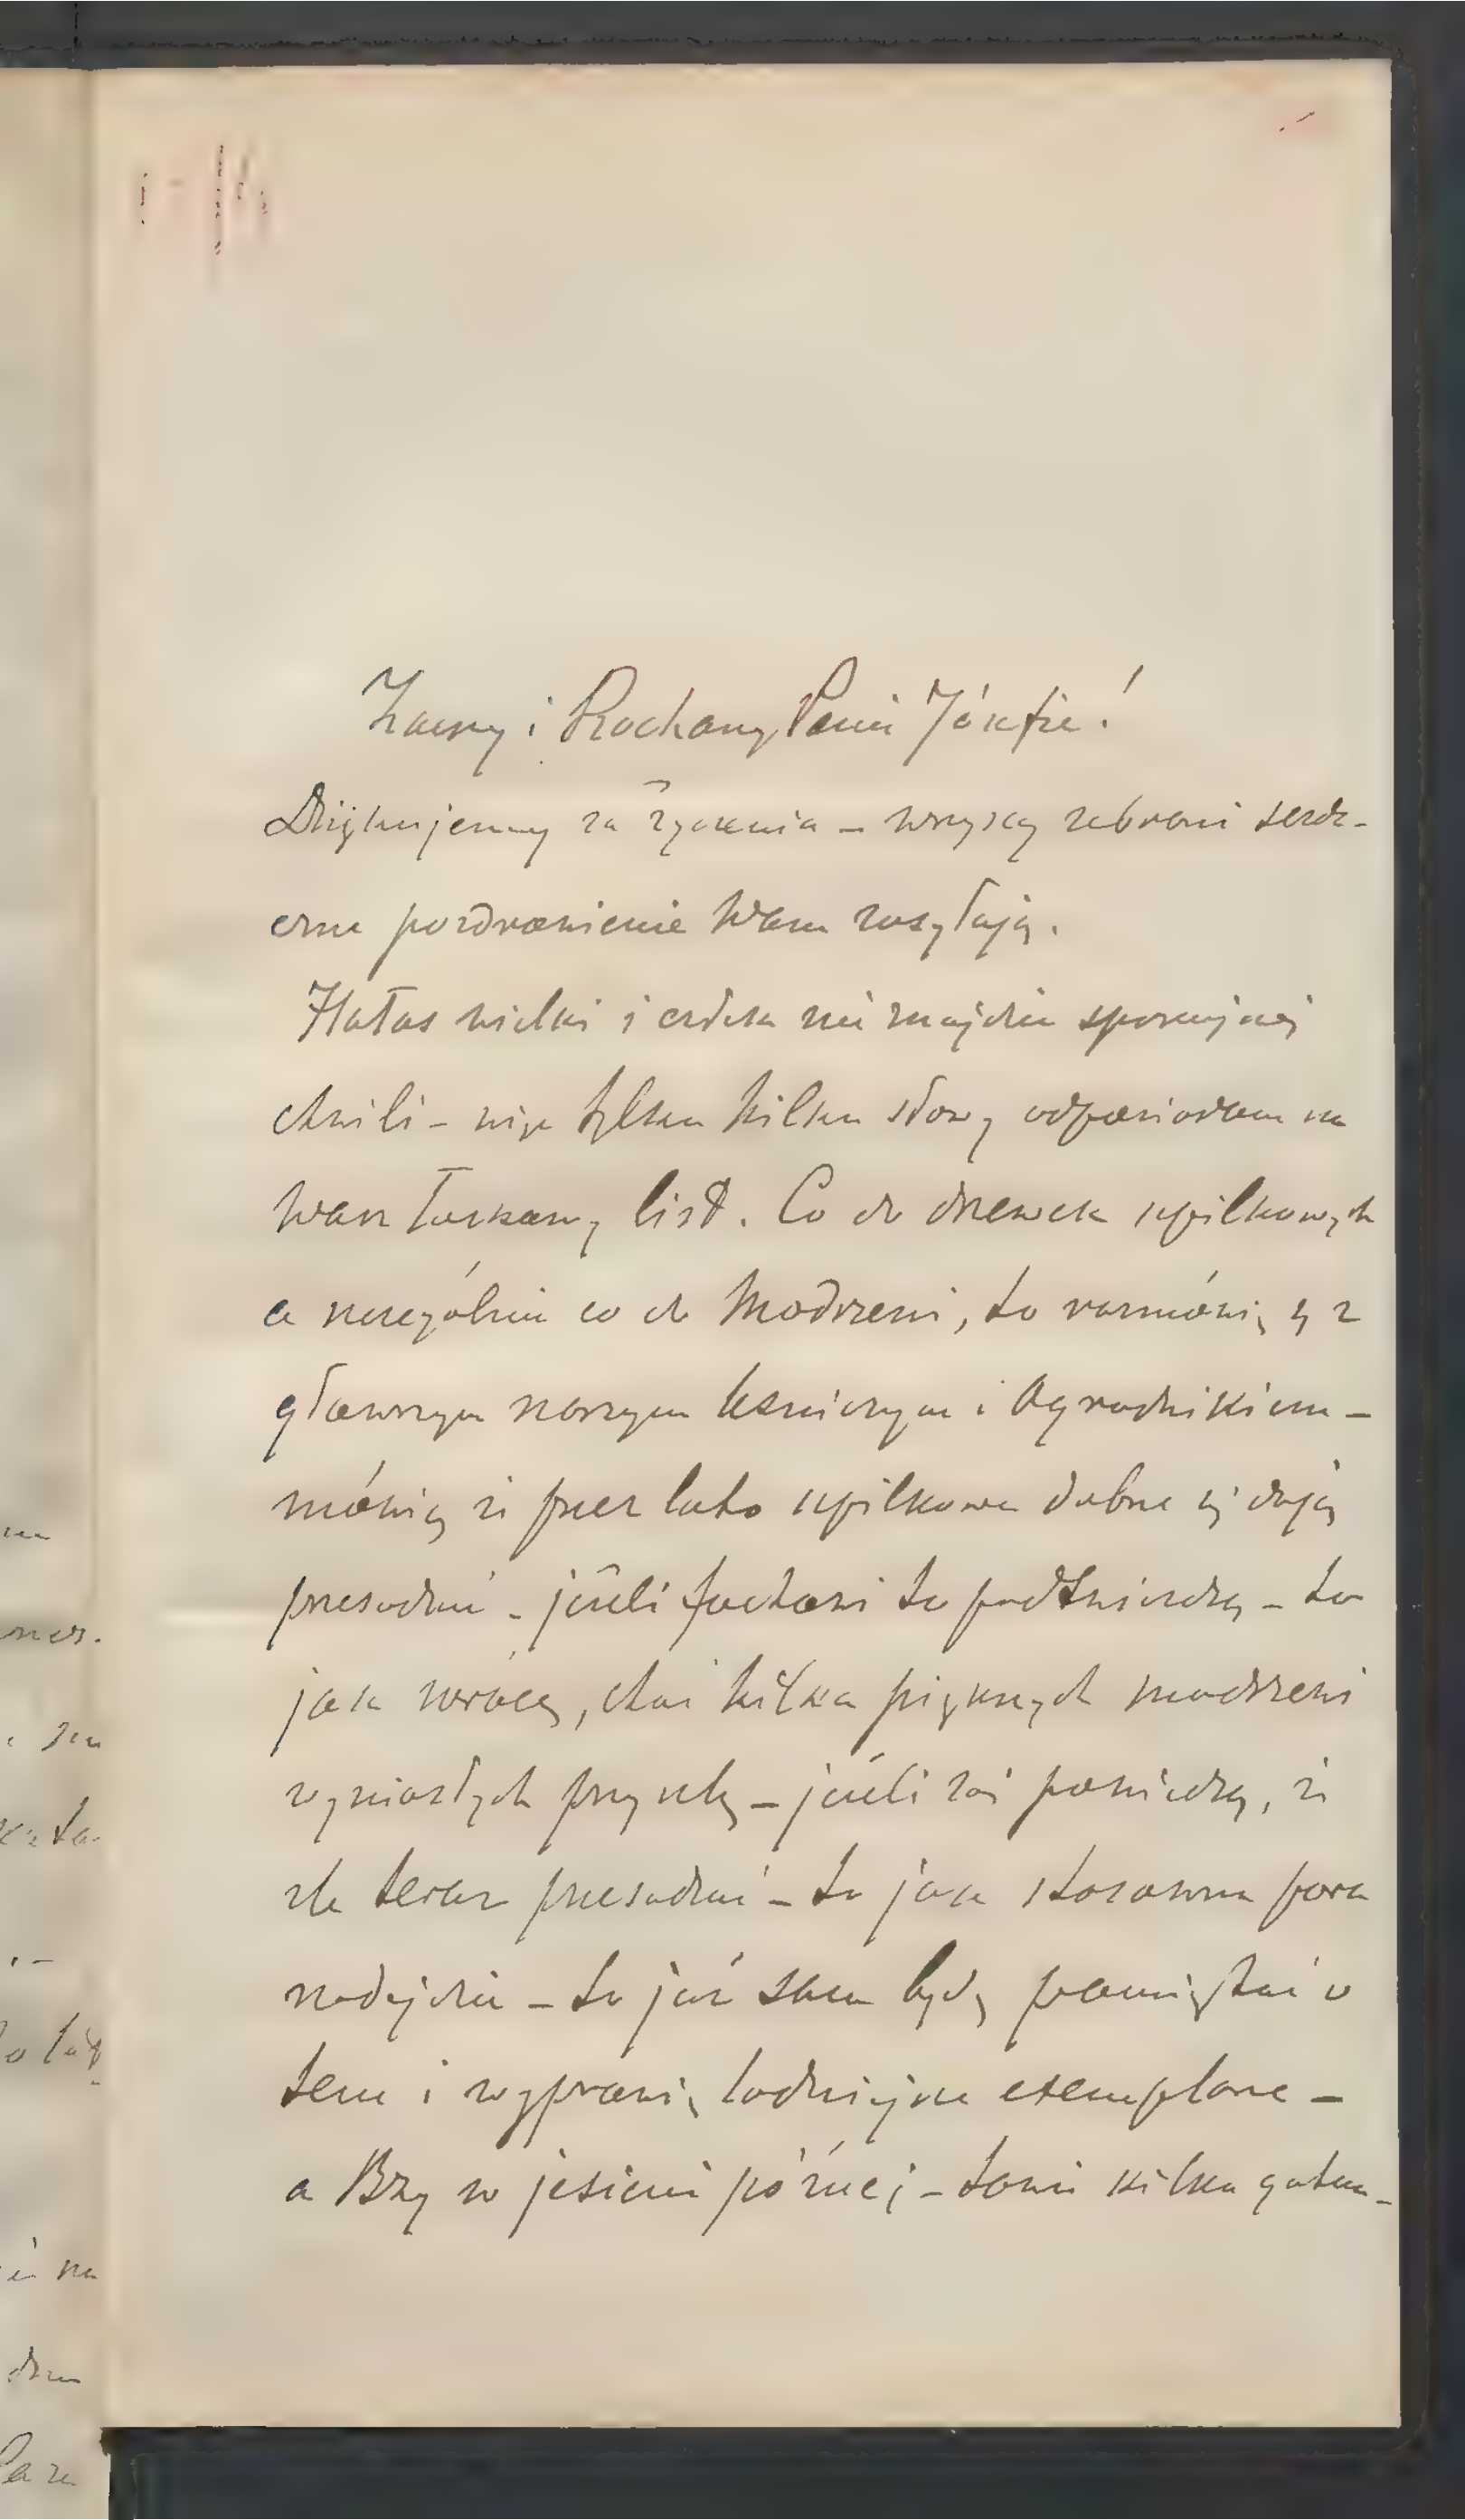 Zacny i Kochany Panie Józefie!
Dziękujemy za życzenia – wszyscy zebrani serde-
czne pozdrowienie Wam zasyłają.
Hałas wielki i człek nie znajdzie spokojnej
chwili – więc tylko kilku słowy odpowiadam na
Wasz łaskawy list. Co do drzewek szpilkowych
a szczególnie co do Modrzewi, to rozmówię się z
głównym naszym leśniczym i Ogrodnikiem –
mówią że przez lato szpilkowe dobrze się dają
przesadzać – jeżeli fachowi to podtwierdzą – to
jak wrócę, choć kilka pięknych modrzewi
wyniosłych przyszlę – jeżeli zaś powiedzą, że
źle teraz przesadzać – to jak stosowna pora
nadejdzie – to już sam będę pamiętać o
tem i wyprawię ładniejsze exemplarze –
a Bzy w jesieni później – kilka gatun-
na